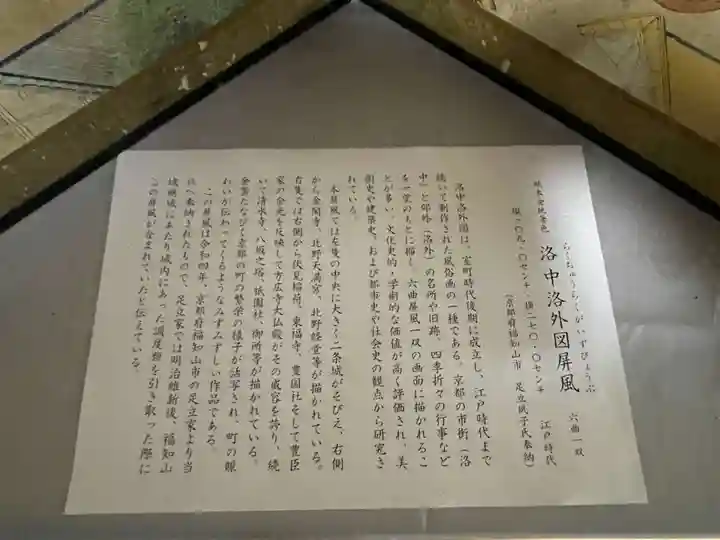 らくちゅうらくがいずびょうぶ
紙本金地著色 洛中洛外図屏風 六曲一双
江戸時代
縦一〇九・〇センチ・横二七〇・〇センチ
(京都府福知山市 足立 子氏奉納)
洛中洛外図は、室町時代後期に成立し、江戸時代まで
続いて制作された風俗画の一種である。京都の市街(洛
中)と郊外(洛外)の名所や旧跡、四季折々の行事など
を一堂のもとに描く。六曲屏風一双の画面に描かれるこ
とが多い。文化史的・学術的な価値が高く評価され、美
術史や建築史、および都市史や社会史の観点から研究さ
れている。
本屏風では左隻の中央に大きく二条城がそびえ、右側
から金閣寺、北野天満宮、北野経堂等が描かれている。
右隻では右側から伏見稲荷、東福寺、豊国社そして豊臣
家の余光を反映して方広寺大仏殿がその威容を誇り、続
いて清水寺、八坂之塔、祇園社、御所等が描かれている。
金雲たなびく京都の町の繁栄の様子が活写され、町の賑
わいが伝わってくるようなみずみずしい作品である。
この屏風は令和四年、京都府福知山市の足立家より当
社へ奉納されたもので、足立家では明治維新後、福知山
城廃城にあたり城内にあった調度類を引き取った際に
この屏風が含まれていたと伝えている。